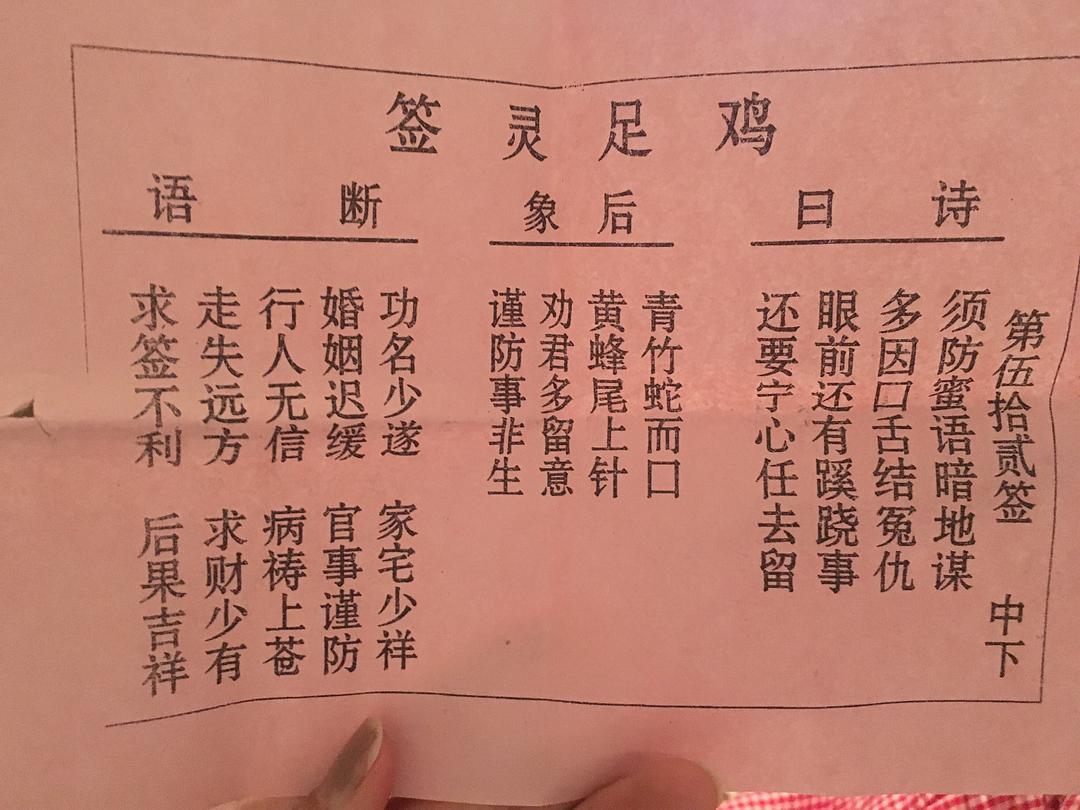 鸡足灵签
诗曰
第伍拾贰签 中下
须防蜜语暗地谋
多因口舌结冤仇
眼前还有蹊跷事
还要宁心任去留
后象
青竹蛇而口
黄蜂尾上针
劝君多留意
谨防事非生
断语
功名少遂 家宅少祥
婚姻迟缓 官事谨防
行人无信 病祷上苍
走失远方 求财少有
求签不利 后果吉祥